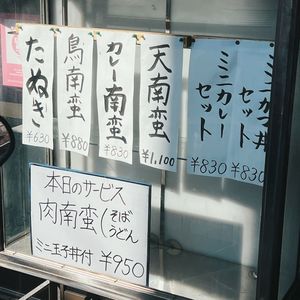 ミニカツ丼
セット
¥830
ミニカレー
セット
¥830
天南蛮
¥1,100
カレー南蛮
¥830
鳥南蛮
¥880
たぬき
¥630
本日のサービス
肉南蛮(そば
うどん
ミニ玉子丼付 ¥950